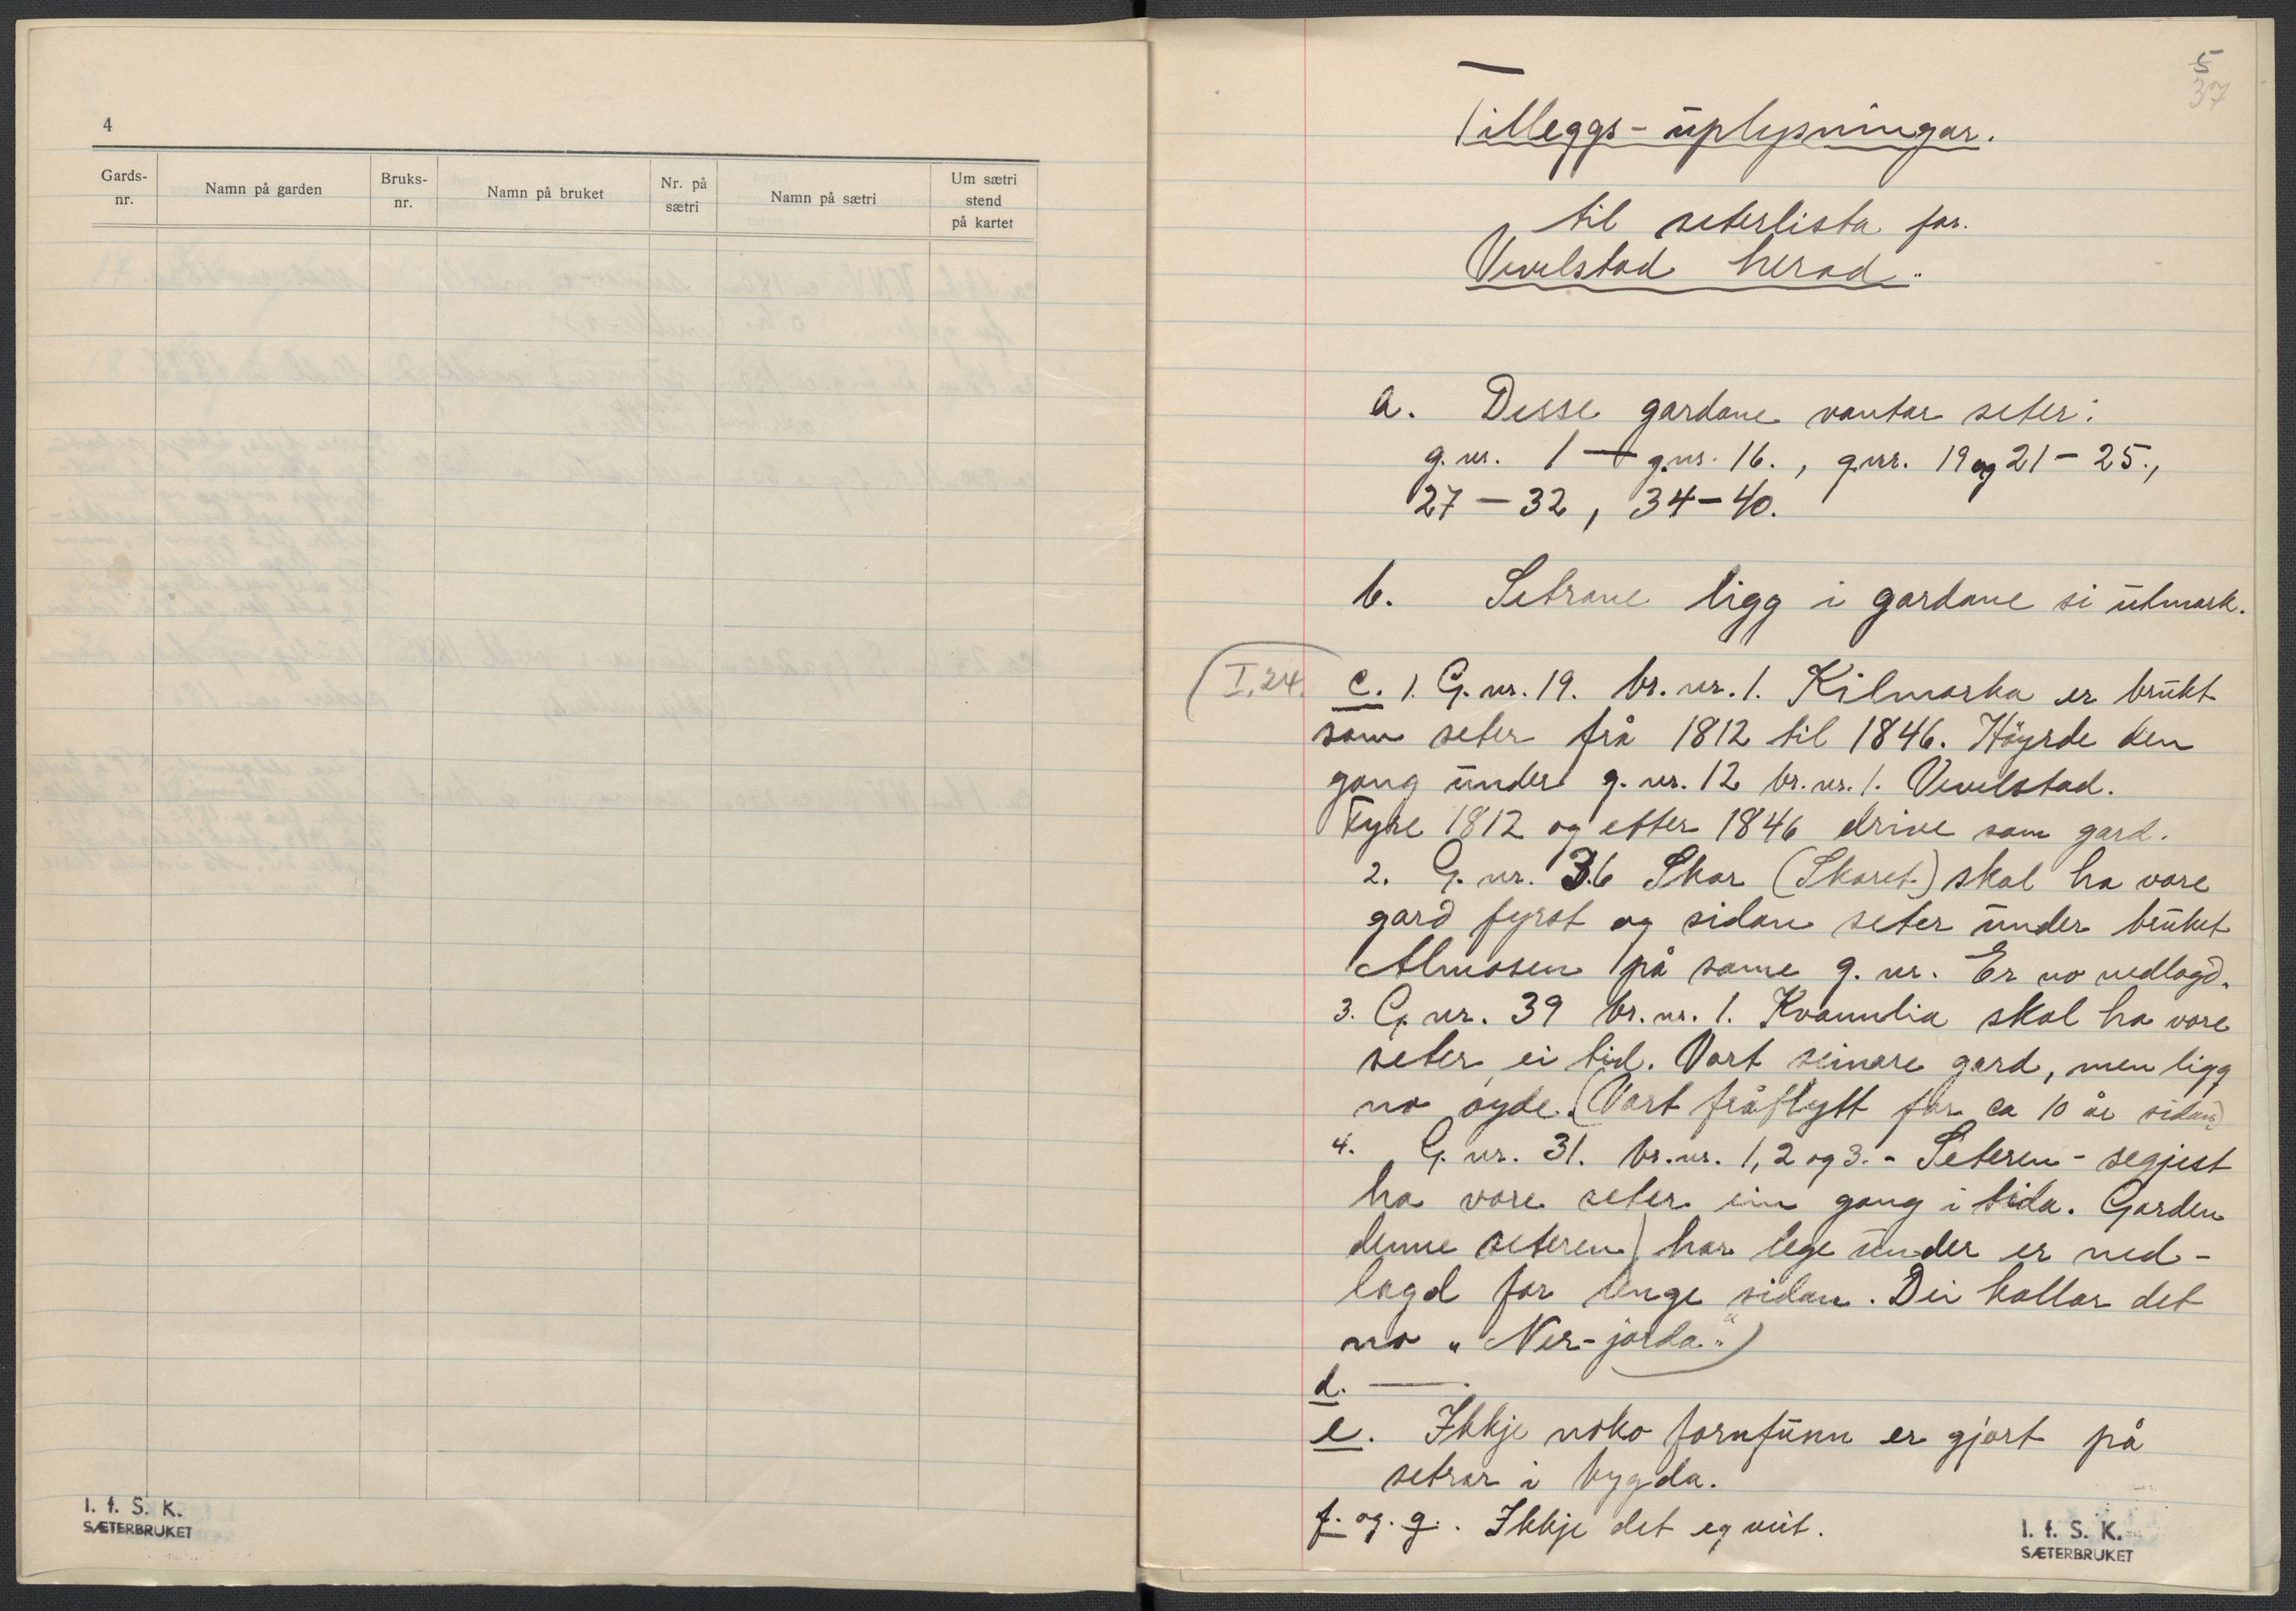 4
Gards-
nr.
Namn på garden
Bruks-
nr.
Namn på bruket
Nr. på
sætri
Namn på sætri
Um sætri
stend
på kartet
I. f. S. K.
SÆTERBRUKET
5
37
Tilleggs-uplysningar.
til seterlista for
Vevelstad herad.
a. Desse gardane vantar seter:
g.nr. 1 — g.nr. 16., g.nr. 19 og 21 – 25.,
27 – 32, 34 – 40.
b. Setrane ligg i gardane si utmark.
I, 24. c. 1. G.nr. 19. br.nr. 1. Kilmarka er brukt
som seter frå 1812 til 1846. Höyrde den
gong under g.nr. 12 br.nr. 1. Vevelstad.
Fyre 1812 og etter 1846 drive som gard.
2. G.nr. 36 Skar (Skaret.) skal ha vore
gard fyrst og sidan seter under bruket
Almosen på same g.nr. Er no nedlagd.
3. G.nr. 39 br.nr. 1. Kvannlia skal ha vore
seter ei tid. Vart seinare gard, men ligg
no øyde. (Vart fråflytt for ca 10 år sidan)
4. G.nr. 31. br.nr. 1, 2 og 3. - Seteren - segjest
ha vore seter ein gong i tida. Garden
denne seteren) har lege under er ned-
lagd for lenge sidan. Dei kallar det
no "Ner-jorda")
d. —.
e. Ikkje noko fornfunn er gjort på
setrar i bygda.
f. og. g. . Ikkje det eg veit.
I. f. S. K.
SÆTERBRUKET